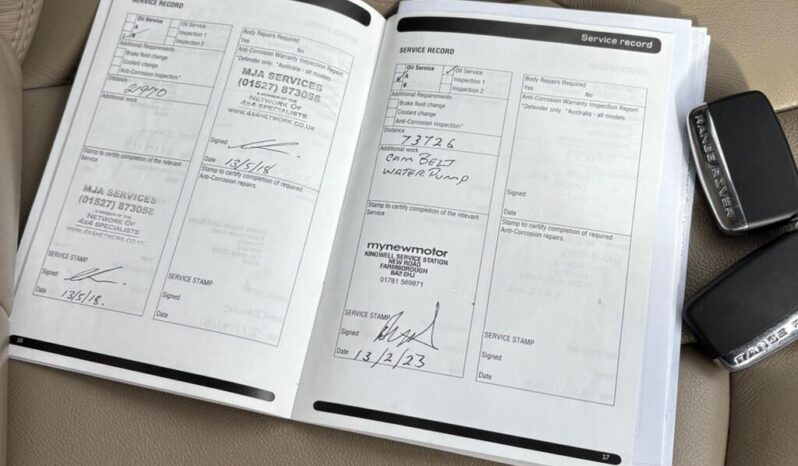 SERVICE RECORD
Oil Service
A
B
Inspection 1
Inspection 2
Additional Requirements
Brake fluid change
Coolant change
Anti-Corrosion inspection*
Distance
21970
Additional work
Stamp to certify completion of the relevant
Service
MJA SERVICES
(01527) 873058
A MEMBER OF THE
NETWORK OF
4X4 SPECIALISTS
WWW.4X4NETWORK.CO.UK
SERVICE STAMP
Signed
Date
13/5/18.
16
Body Repairs Required
Yes
No
Anti-Corrosion Warranty Inspection Report
*Defender only. *Australia - all models
MJA SERVICES
(01527) 873058
A MEMBER OF THE
NETWORK OF
4X4 SPECIALISTS
WWW.4X4NETWORK.CO.UK
Signed
Date
13/5/18
Stamp to certify completion of required
Anti-Corrosion repairs.
SERVICE STAMP
Signed
Date
Service record
SERVICE RECORD
Oil Service
A
B
Oil Service
Inspection 1
Inspection 2
Additional Requirements
Brake fluid change
Coolant change
Anti-Corrosion inspection*
Distance
73726
Additional work
CAM BELT
WATER PUMP
Stamp to certify completion of the relevant
Service
mynewmotor
KINGWELL SERVICE STATION
NEW ROAD
FARMBOROUGH
BA2 0HJ
01761 569871
SERVICE STAMP
Signed
Date
13/2/23
Body Repairs Required
Yes
No
Anti-Corrosion Warranty Inspection Report
*Defender only. *Australia - all models
Signed
Date
Stamp to certify completion of required
Anti-Corrosion repairs.
SERVICE STAMP
Signed
Date
17
RANGE ROVER
RANGE